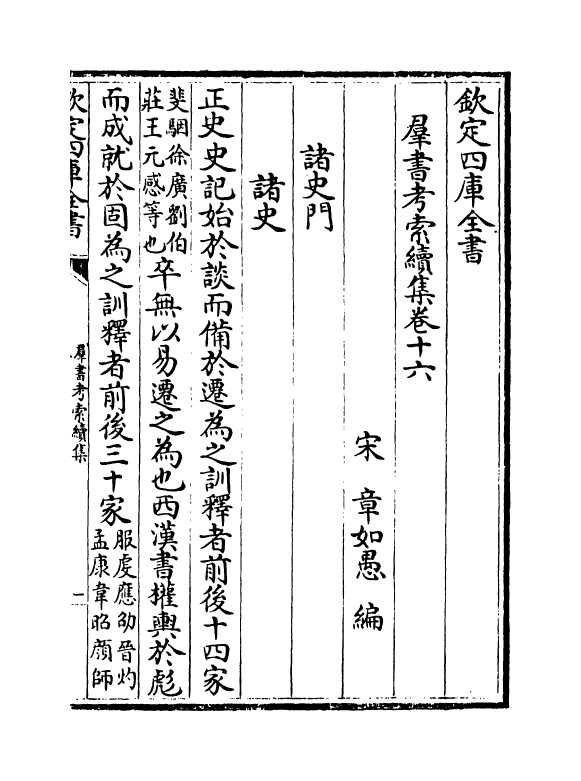 欽定四庫全書
羣書考索續集卷十六
宋 章如愚 編
諸史門
諸史
正史史記始於談而備於遷為之訓釋者前後十四家
裴駰徐廣劉伯
莊王元感等也
卒無以易遷之為也西漢書權輿於彪
而成就於固為之訓釋者前後三十家
服虔應劭晉灼
孟康韋昭顔師
欽定四庫全書
羣書考索續集
一